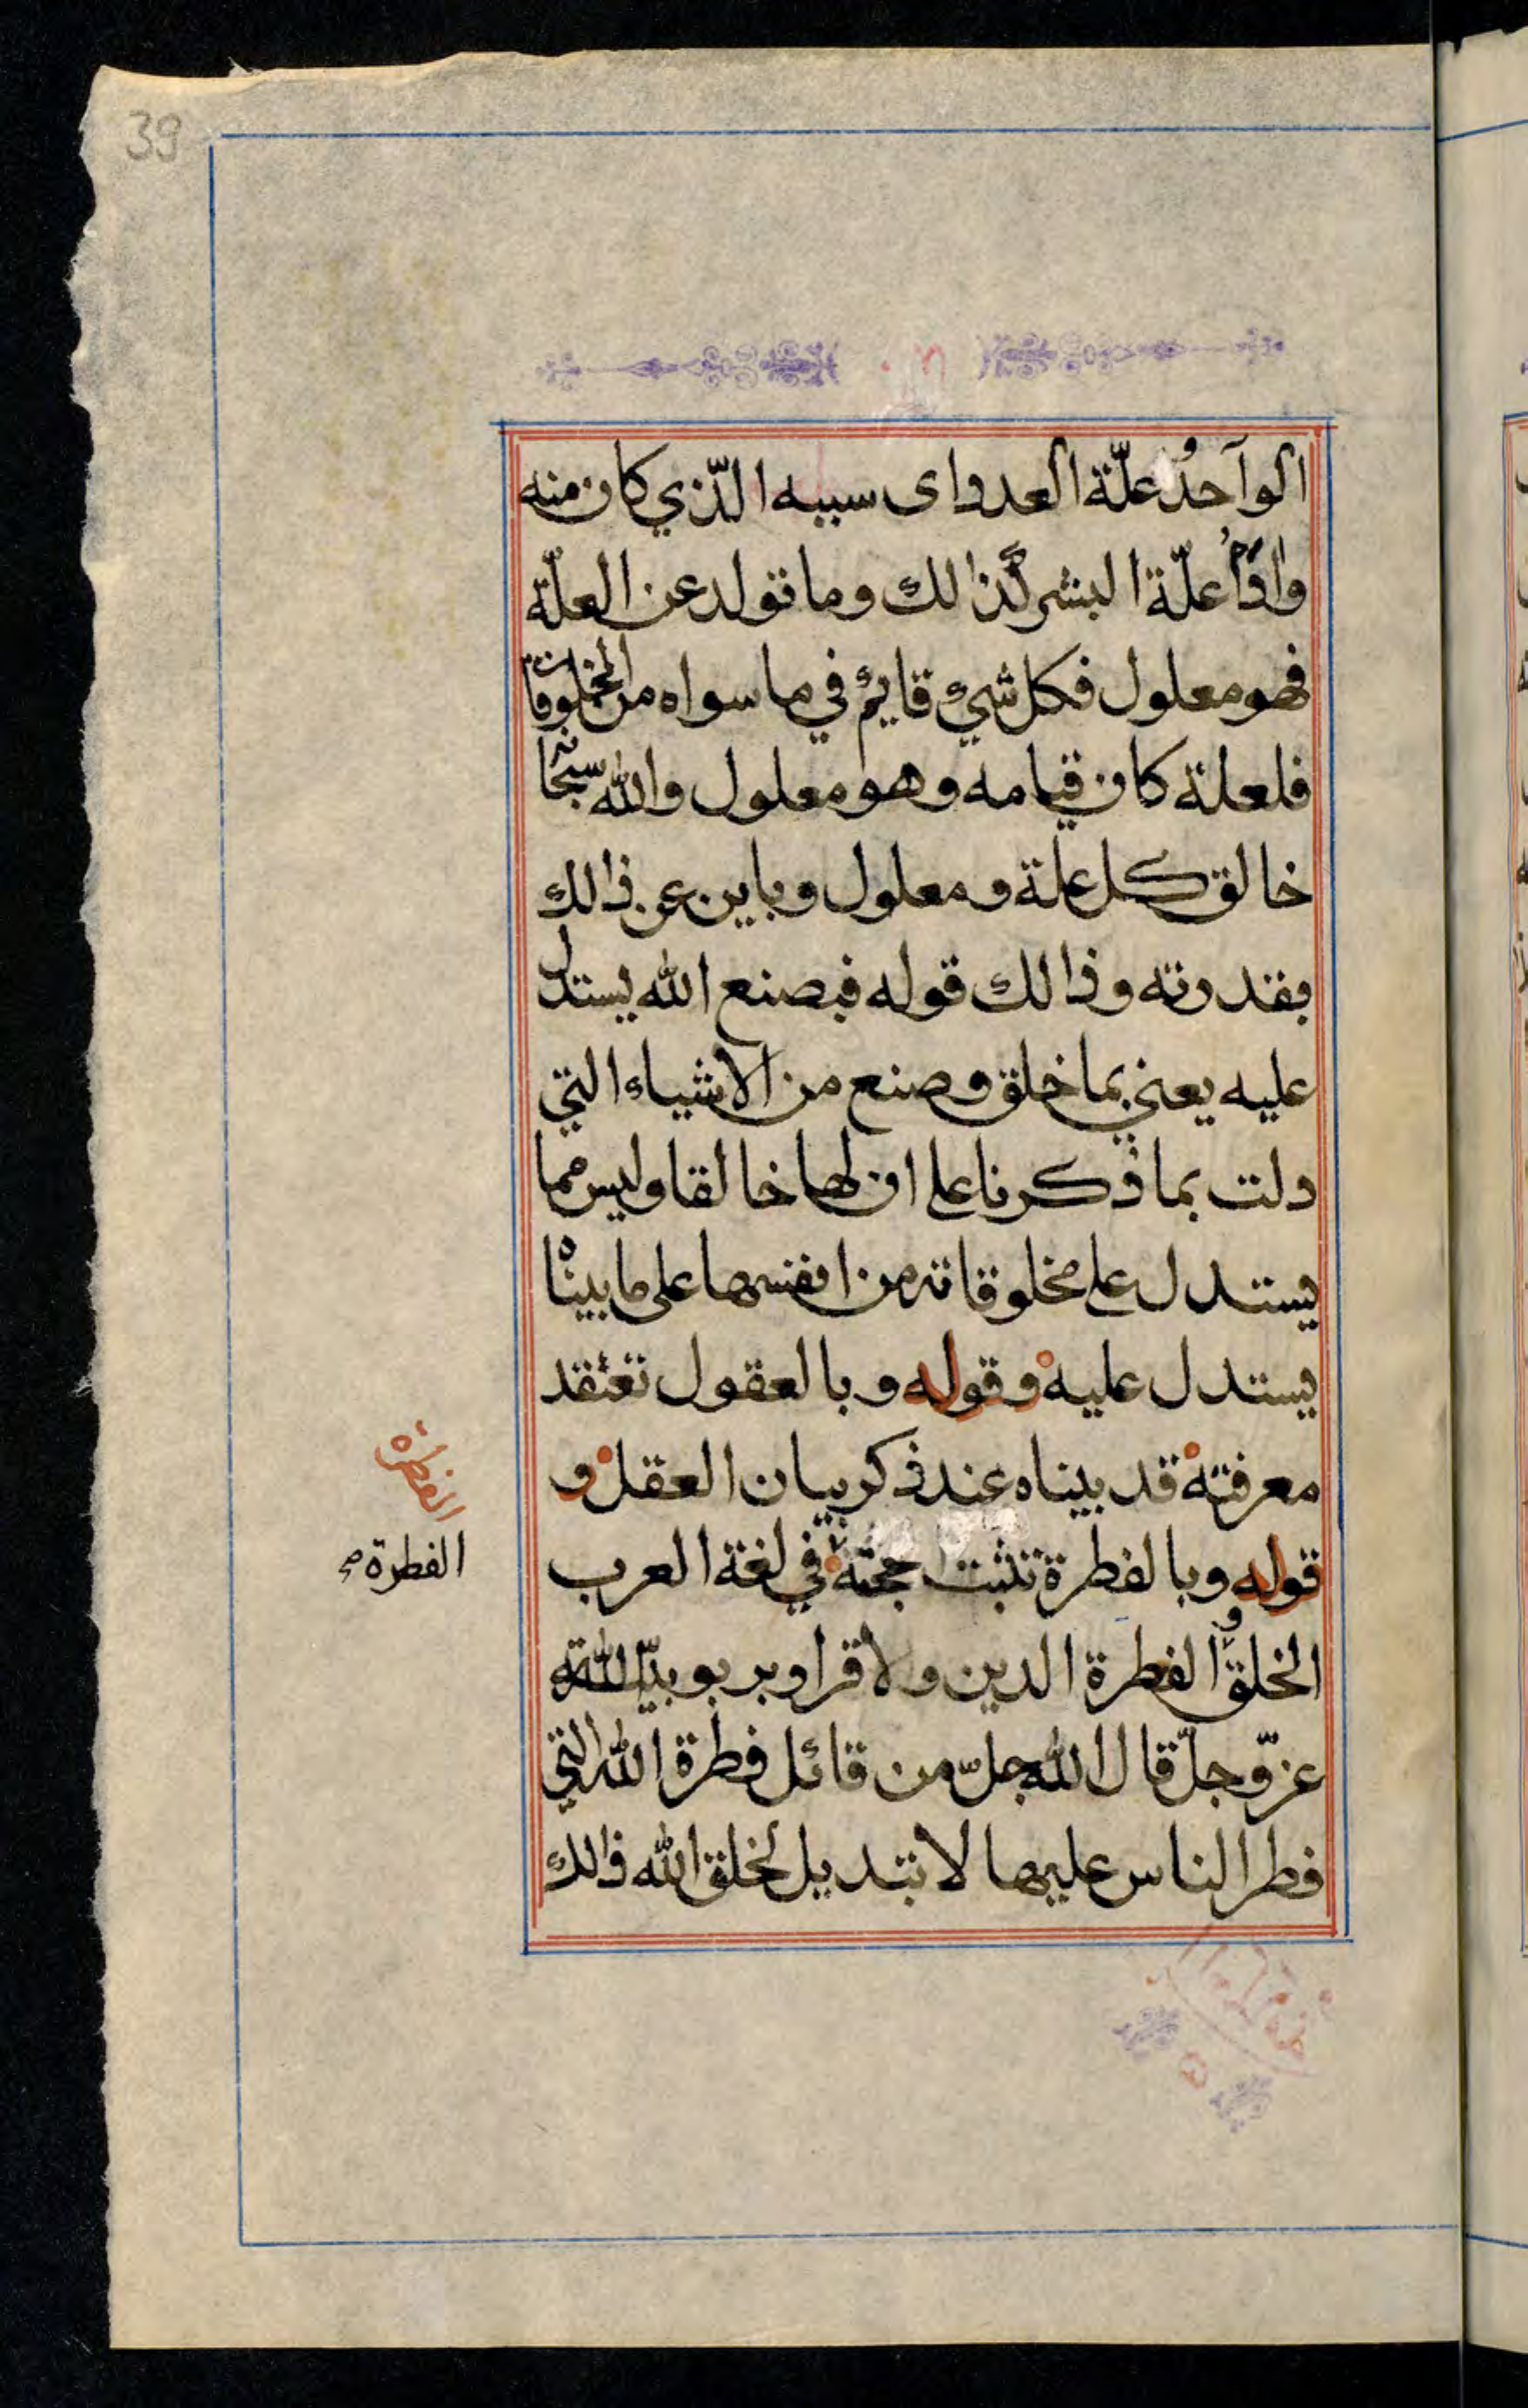 39
الوآحدُ علّة العدد اى سببه الّذي كان منه
وادمُ علّة البشر كذالك وما تولد عن العلّة
فهو معلول فكل شيء قايم في ما سواه من المخلوقات
فلعلة كان قيامه وهو معلول والله سبحانه
خالق كل علة ومعلول وباين عن ذالك
بقدرته وذالك قوله فبصنع الله يستدل
عليه يعني بما خلق وصنع من الاشياء التي
دلت بما ذكرنا على ان لها خالقا وليس مما
يستدل على مخلوقاته من انفسها على ما بيناه
يستدل عليه وقوله وبالعقول تعتقد
معرفته قد بيناه عند ذكر بيان العقل و
قوله وبالفطرة تثبت حجته في لغة العرب
الفطرة
الفطرة
الخلق والفطرة الدين والاقرار بربوبيّة الله
عزّوجلّ قال الله جلّ من قائل فطرة الله التي
فطر الناس عليها لا تبديل لخلق الله ذالك